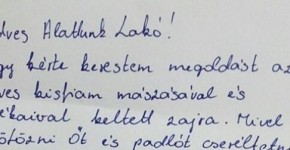 dves Alattunk Lakó!
gy kérte keressem megoldást az
ves kisfiam mászásával és
ékaival keltett zajra. Mivel
ötözni Őt és padlót cseréltetni